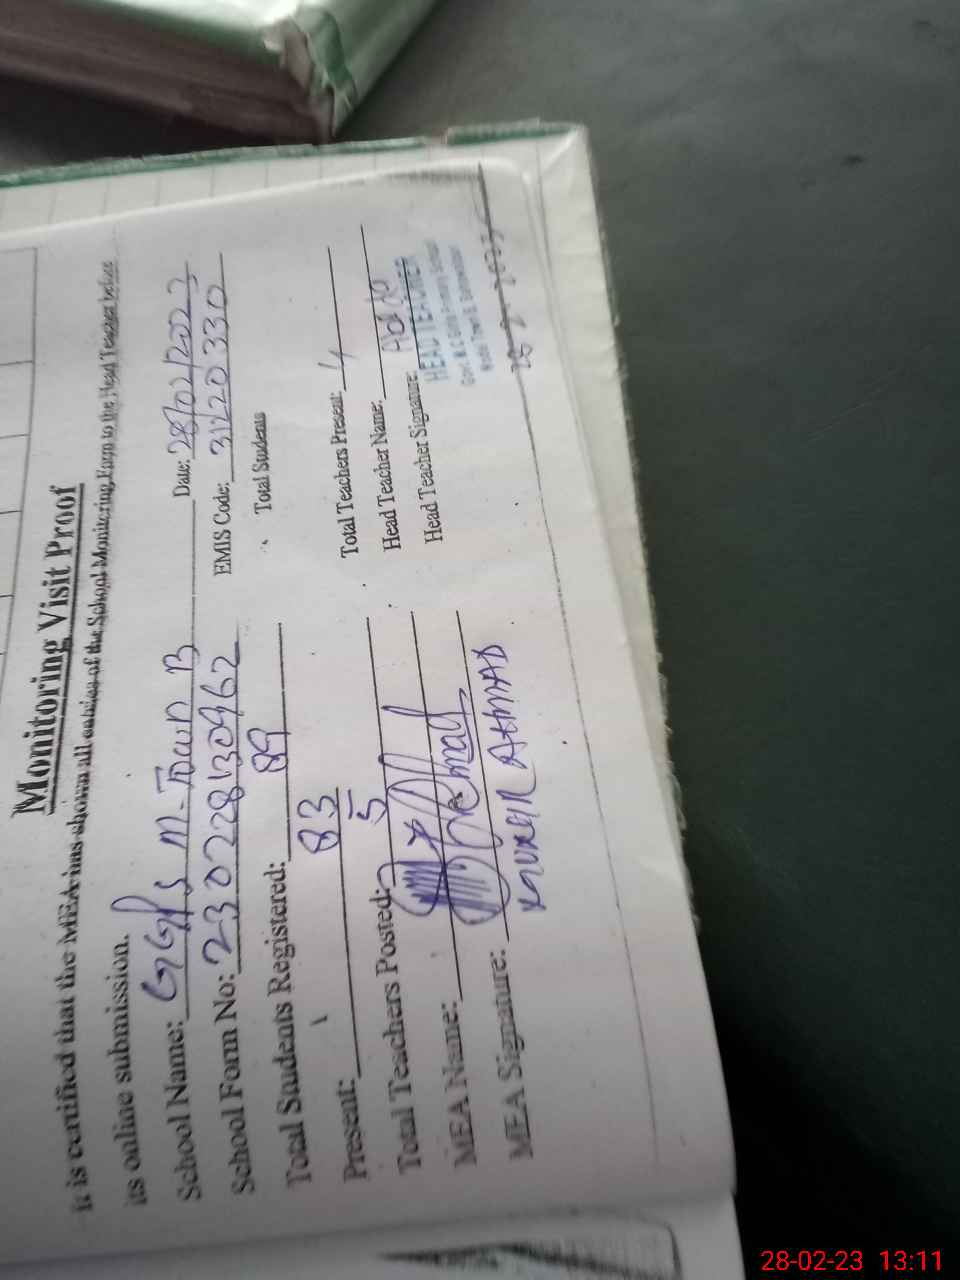 Monitoring Visit Proof
It is certified that the MEA has shown all entries of the School Monitoring Form to the Head Teacher before
its online submission.
School Name: GGPS M-Town B Date: 28/02/2023
School Form No: 230228130962 EMIS Code: 31220330
Total Students Registered: 89 Total Students
Present: 83
Total Teachers Posted: 5 Total Teachers Present: 4
MEA Name: Head Teacher Name:
MEA Signature: Head Teacher Signature:
AHMAD
HEAD TEACHER
28-2-2023
28-02-23 13:11